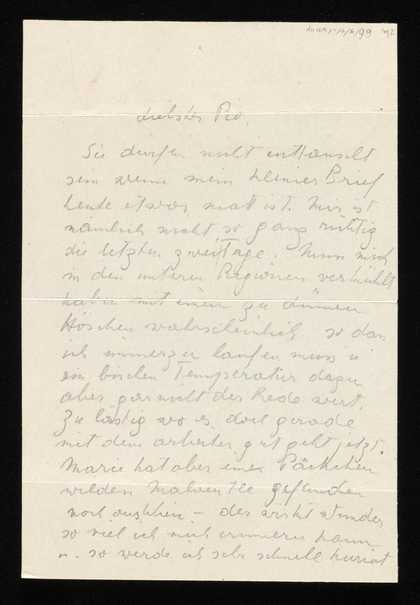 Liebster Pio,
Sie dürfen nicht enttäuscht
sein wenn mein kleiner Brief
heute etwas matt ist. Mir ist
nämlich nicht so ganz richtig
die letzten zwei Tage. Muss mich
in den unteren Regionen verkühlt
haben mit einem zu dünnen
Höschen wahrscheinlich, so dass
ich immerzu laufen muss u
ein bischen Temperatur dazu
aber gar nicht der Rede wert.
Zu lästig wo es doch gerade
mit dem arbeiten gut geht jetzt.
Marie hat aber einen Päckchen
wilden Malven Tee gefunden
noch – der wirkt Wunder
so viel ich mich erinnern kann
u. so werde ich sehr schnell kuriert